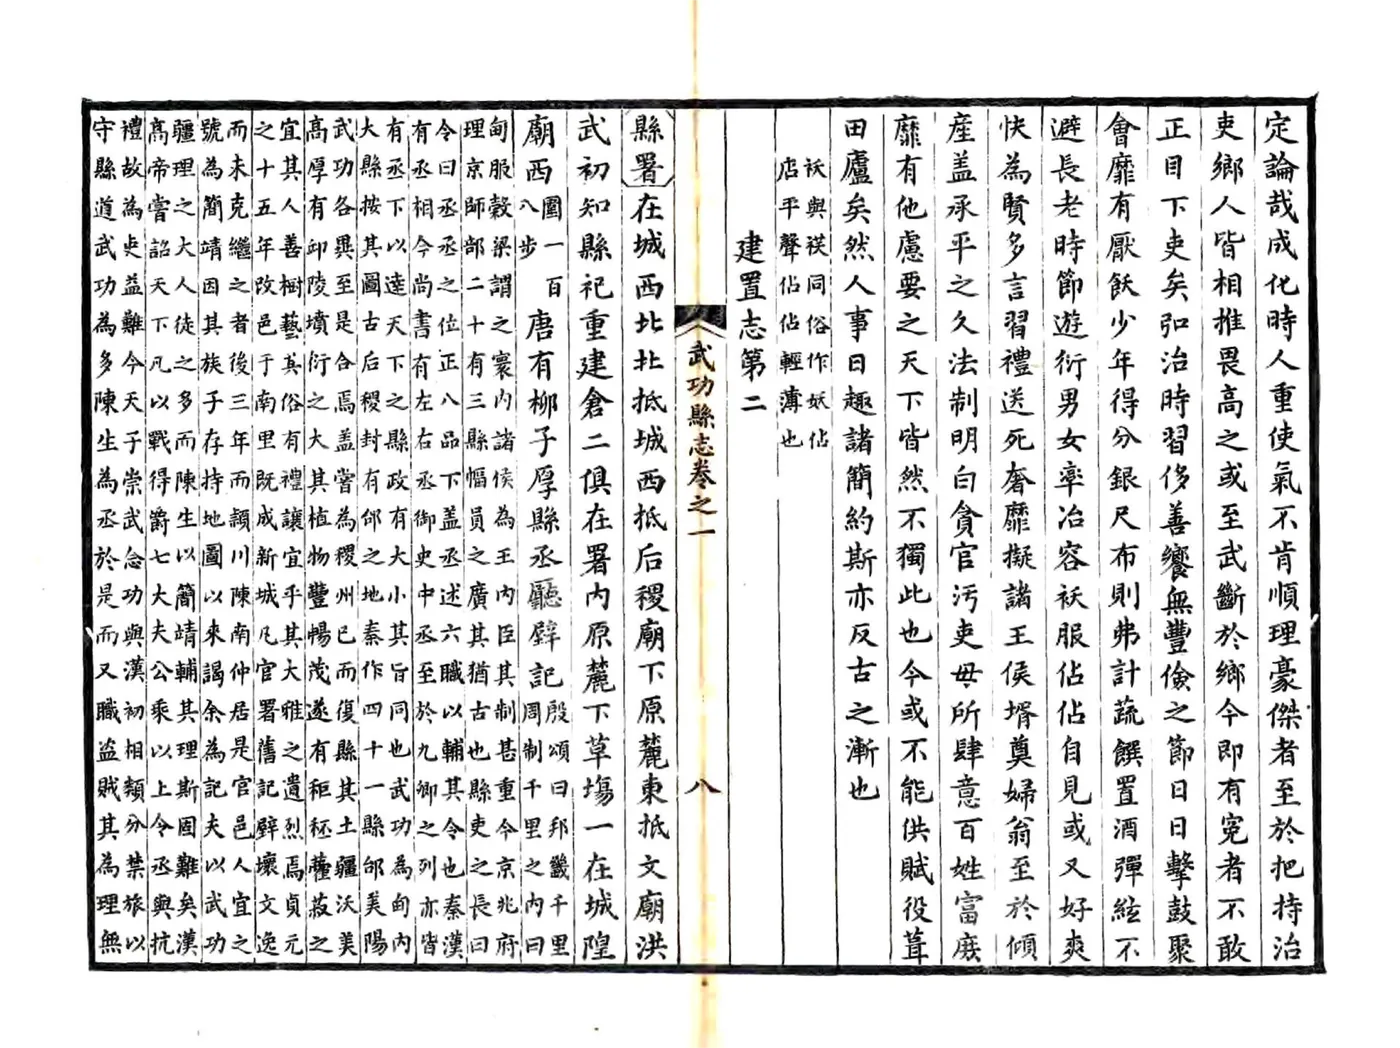 定論哉成化時人重使氣不肯順理豪傑者至於把持治
吏鄉人皆相推畏高之或至武斷於鄉今即有寃者不敢
正目下吏矣弘治時習侈善饗無豐儉之節日日擊鼓聚
會靡有厭飫少年得分銀尺布則弗計蔬饌置酒彈絃不
避長老時節遊衍男女率冶容袄服佔佔自見或又好爽
快為賢多言習禮送死奢靡擬諸王侯壻奠婦翁至於傾
產盖承平之久法制明白貪官污吏毋所肆意百姓富庶
靡有他慮要之天下皆然不獨此也今或不能供賦役葺
田廬矣然人事日趣諸簡約斯亦反古之漸也
袄與祆同俗作妖佔
店平聲佔佔輕薄也
建置志第二
武功縣志卷之一 八
縣署在城西北北抵城西抵后稷廟下原麓東抵文廟洪
武初知縣祀重建倉二俱在署內原麓下草塲一在城隍
廟西圍一百八步 唐有柳子厚縣丞廳壁記殷頌曰邦畿千里周制千里之內曰
甸服榖梁謂之寰內諸侯為王內臣其制甚重今京兆府
理京師部二十有三縣幅員之廣其猶古也縣吏之長曰
令曰丞丞之位正八品下盖丞述六職以輔其令也秦漢
有丞相今尚書有左右丞御史中丞至於九卿之列亦皆
有丞下以達天下之縣政有大小其旨同也武功為甸內
大縣按其圖古后稷封有邰之地秦作四十一縣邰美陽
武功各異至是合焉盖嘗為稷州已而復縣其土疆沃美
高厚有邱陵墳衍之大其植物豐暢茂遂有秬秠虋菽之
宜其人善樹藝其俗有禮讓宜乎其大雅之遺烈焉貞元
之十五年改邑于南里既成新城凡官署舊記壁壞文逸
而未克繼之者後三年而潁川陳南仲居是官邑人宜之
號為簡靖因其族子存持地圖以來謁余為記夫以武功
疆理之大人徒之多而陳生以簡靖輔其理斯固難矣漢
高帝嘗詔天下凡以戰得爵七大夫公乘以上令丞與抗
禮故為吏益難今天子崇武念功與漢初相類分禁旅以
守縣道武功為多陳生為丞於是而又職盜賊其為理無